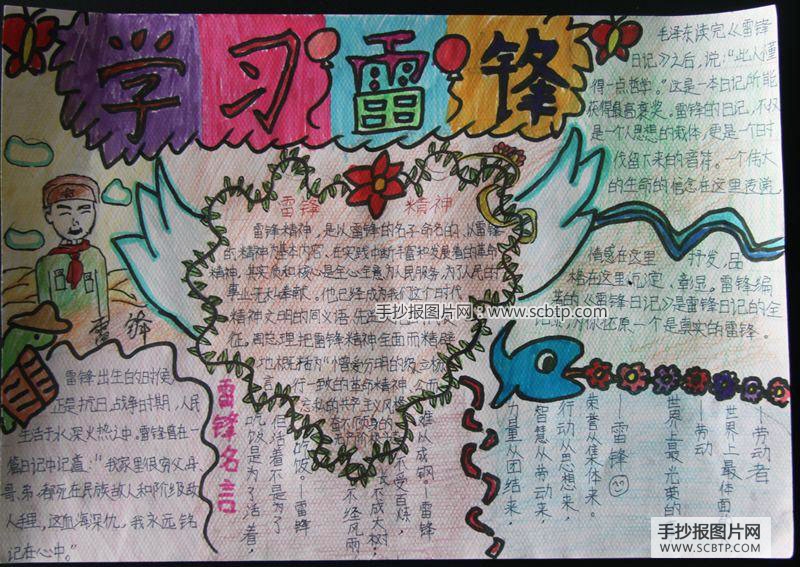 学习雷锋
毛泽东读完《雷锋
日记》之后，说："此人懂
得一点哲学。"这是一本日记所能
获得最高褒奖。雷锋的日记，不仅
是一个人思想的载体，更是一个时
代留下来的音符。一个伟大
的生命的信念在这里表避，
情感在这里 抒发，品
格在这里沉淀，彰显。雷锋编
著的《雷锋日记》是雷锋日记的全
还原一个是真实的雷锋。
雷锋 精神
雷锋精神，是以雷锋的名子命名的，以雷锋
的精神为基本内容，在实践中断丰富和发展着的革命
精神，其实质和核心是全心全意为人民服务，为了人民的
事业无私奉献。他已经成为我们这个时代
精神文明的同义语、先进
征。周总理把雷锋精神全面而精辟
地概括为"憎爱分明的
行一致的革命精神、公而
忘私的共产主义风格
手抄报图片网：www.scbtp.com
雷锋
雷锋出生的时候，
正是抗日战争时期，人民
生活于水深火热之中。雷锋曾在一
篇日记中记着："我家里很穷父、母、
哥、弟都死在民族敌人和阶级敌
人手里，这血海深仇，我永远铭
记在心中。"
雷锋名言
吃饭是为了活着，
但活着不是为了
吃饭。——雷锋
不经风雨，
长不成大树；
不受百炼，
难以成钢。——雷锋
力量从团结来，
智慧从劳动来，
行动从思想来，
荣誉从集体来。
——雷锋
世界上最光荣的
——劳动
世界上最体面
——劳动者
手抄报图片网
WWW.SCBTP.COM